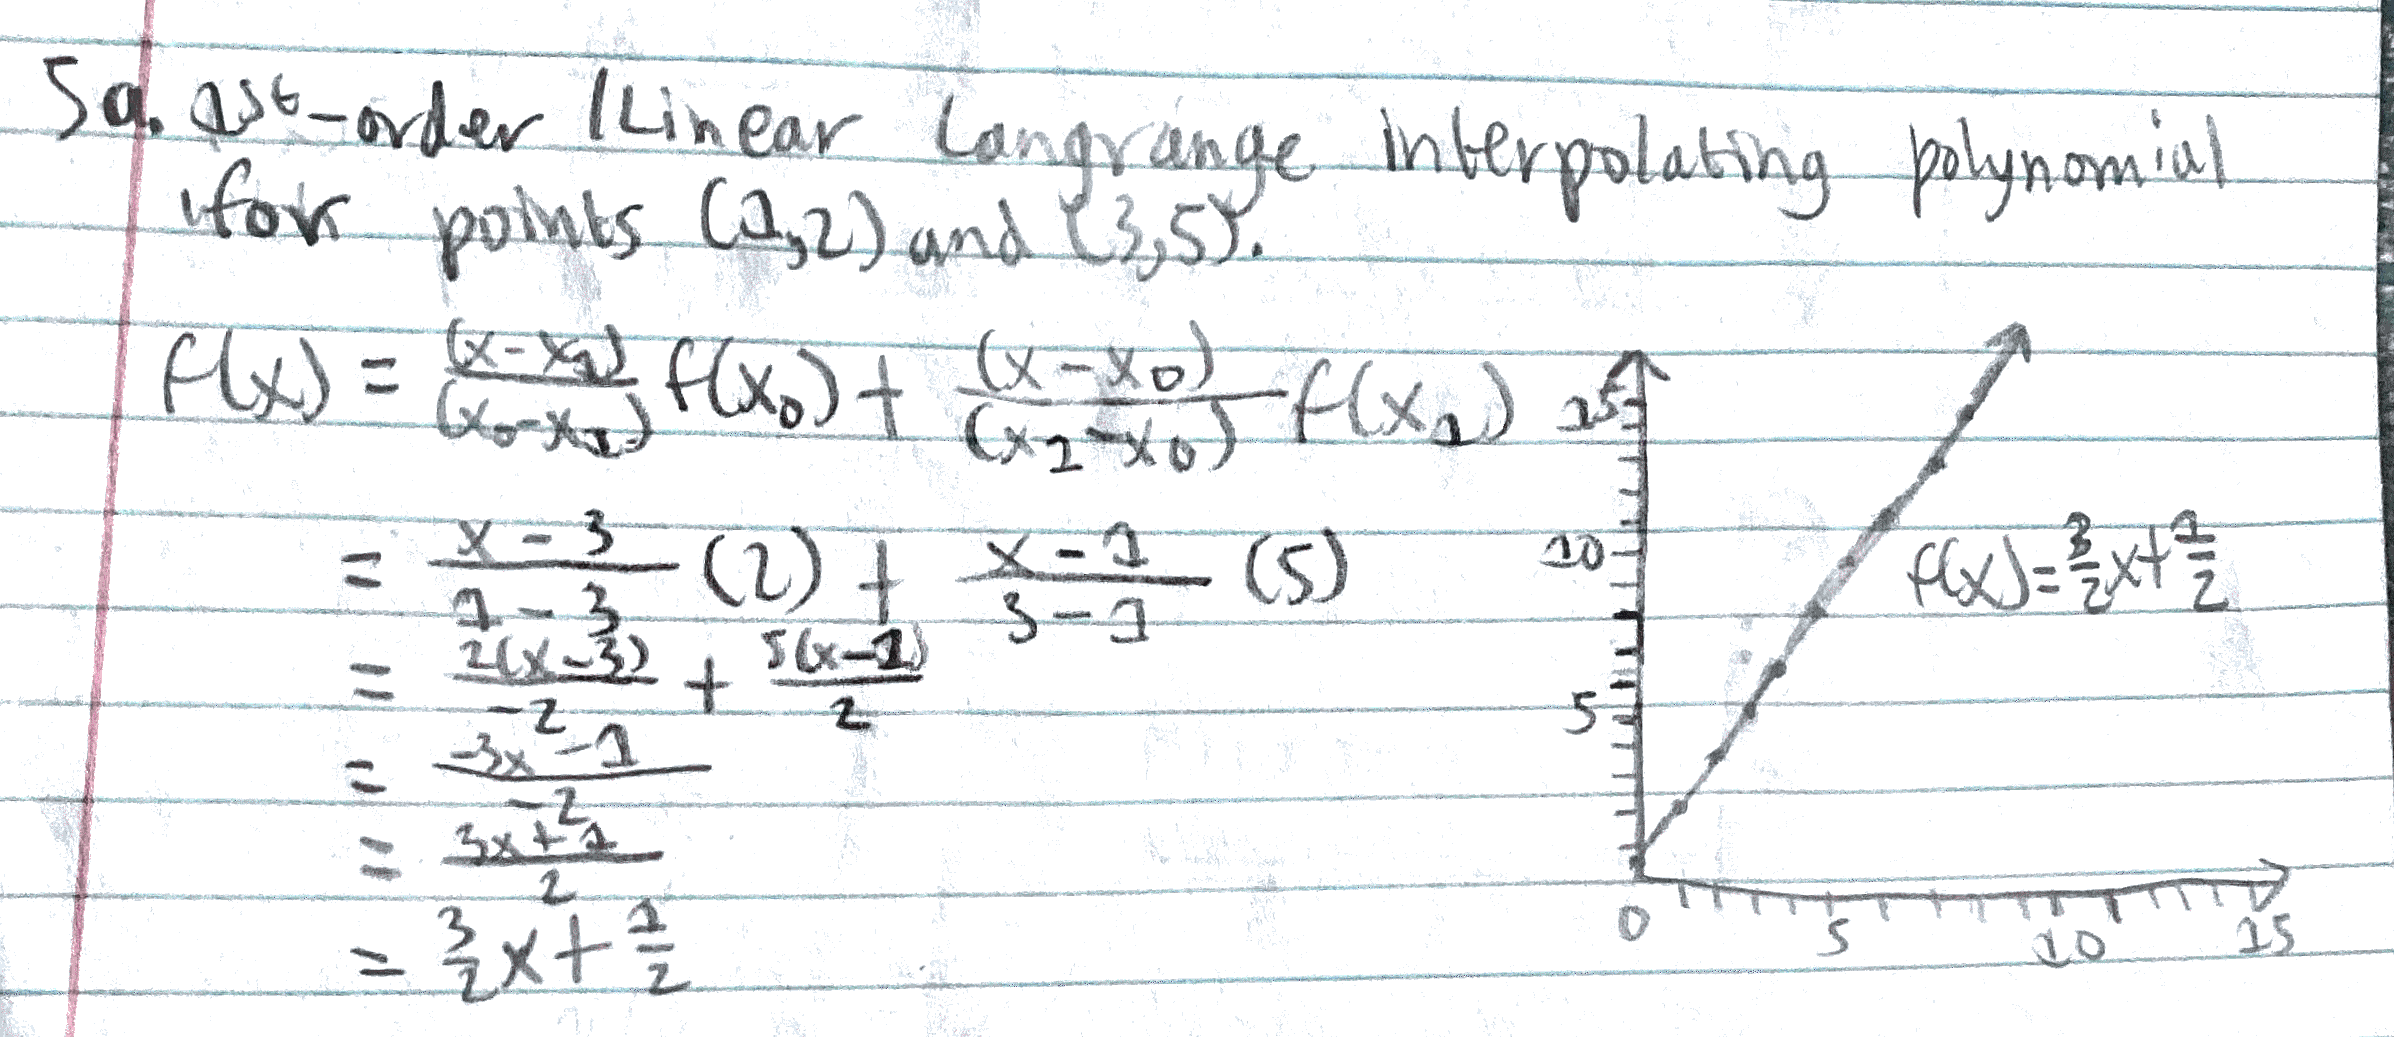 5a. 1st-order / Linear Langrange interpolating polynomial
for points (1,2) and (3,5).
f(x) = (x-x1)/(x0-x1) f(x0) + (x-x0)/(x1-x0) f(x1)
= x-3/1-3 (2) + x-1/3-1 (5)
= 2(x-3)/-2 + 5(x-1)/2
= -3x-1/-2
= 3x+1/2
= 3/2 x + 1/2
15
10
f(x)=3/2x+1/2
5
0 5 10 15